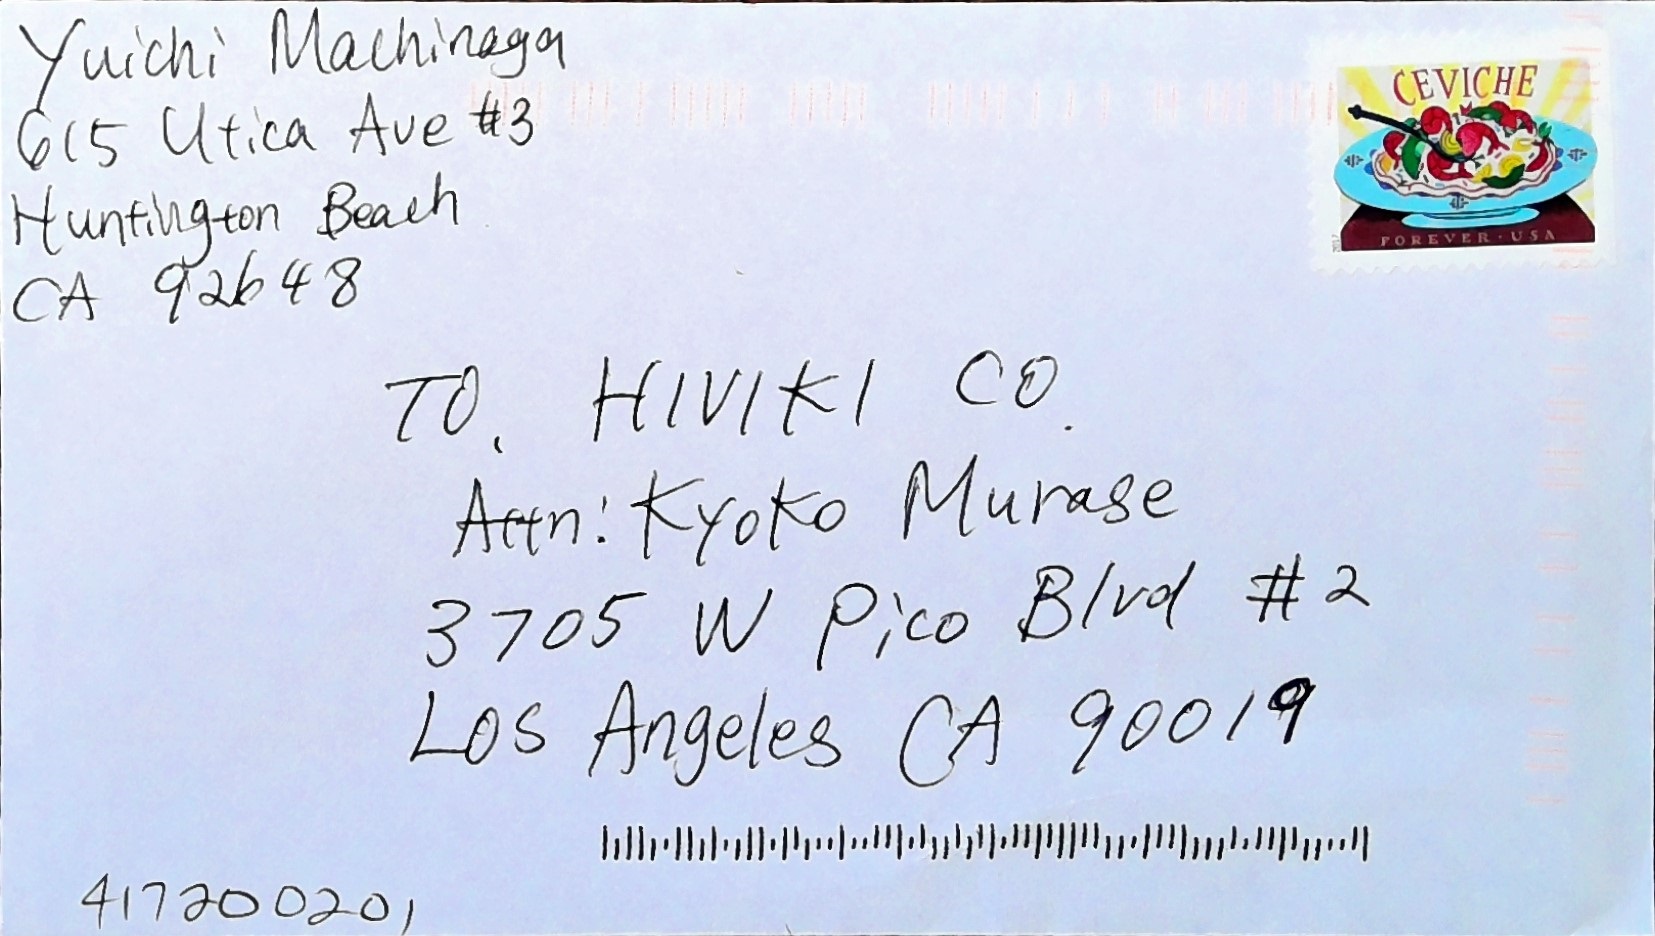 Yuichi Machinaga
615 Utica Ave #3
Huntington Beach
CA 92648
CEVICHE
FOREVER · USA
2017
TO. HIVIKI CO.
Attn: Kyoko Murase
3705 W Pico Blvd #2
Los Angeles CA 90019
417200201